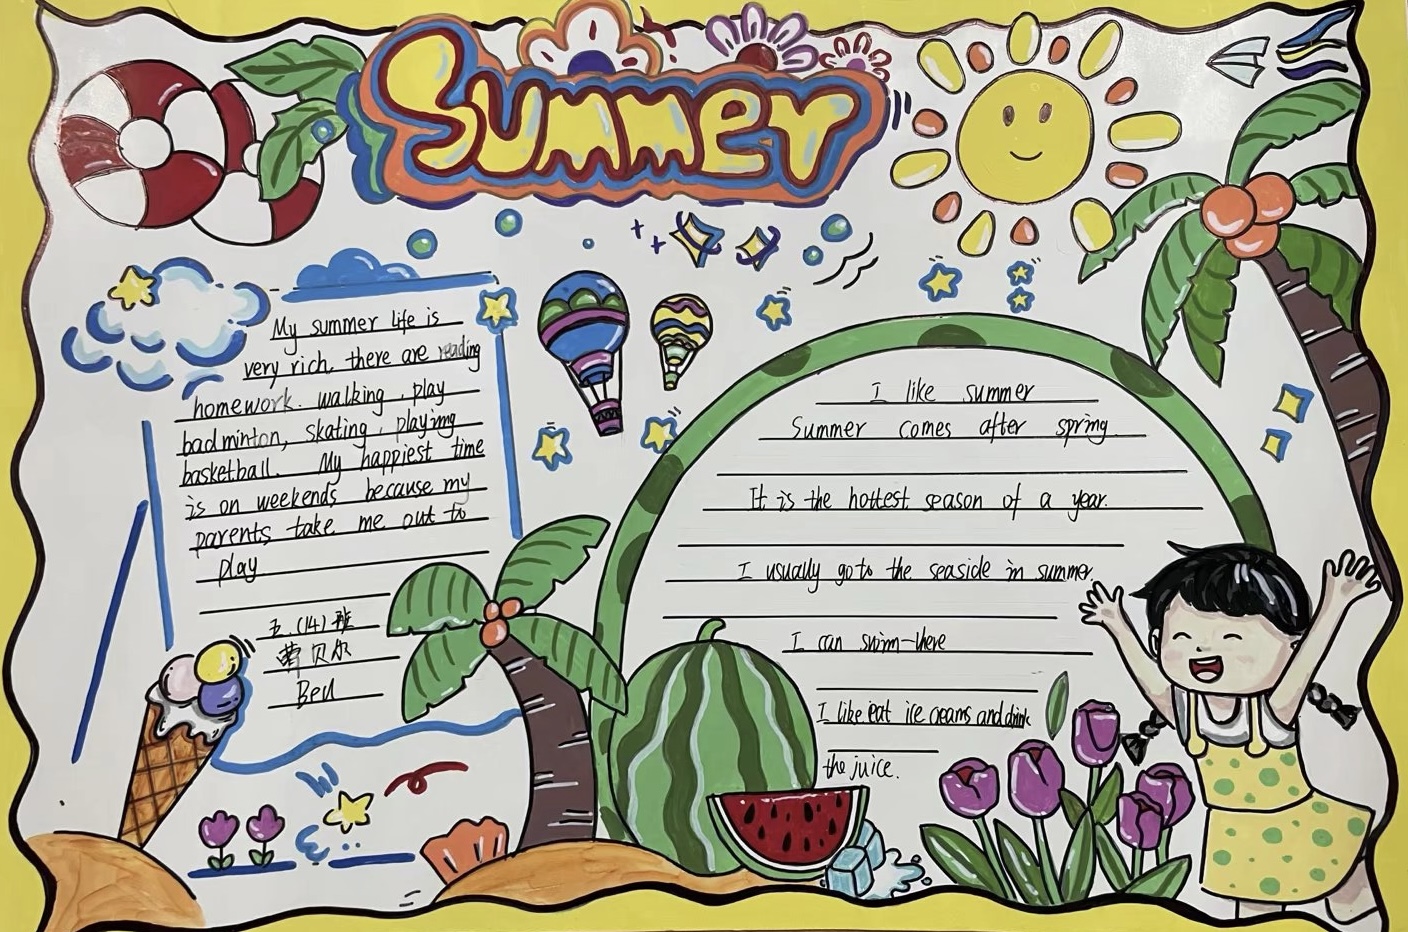 Summer
My summer life is
very rich, there are reading
homework. walking, play
badminton, skating, playing
basketball. My happiest time
is on weekends because my
parents take me out to
play
五.(14)班
贝尔
I like summer
Summer comes after spring.
It is the hottest season of a year.
I usually go to the seaside in summer.
I can swim there
I like eat ice creams and drink
the juice.